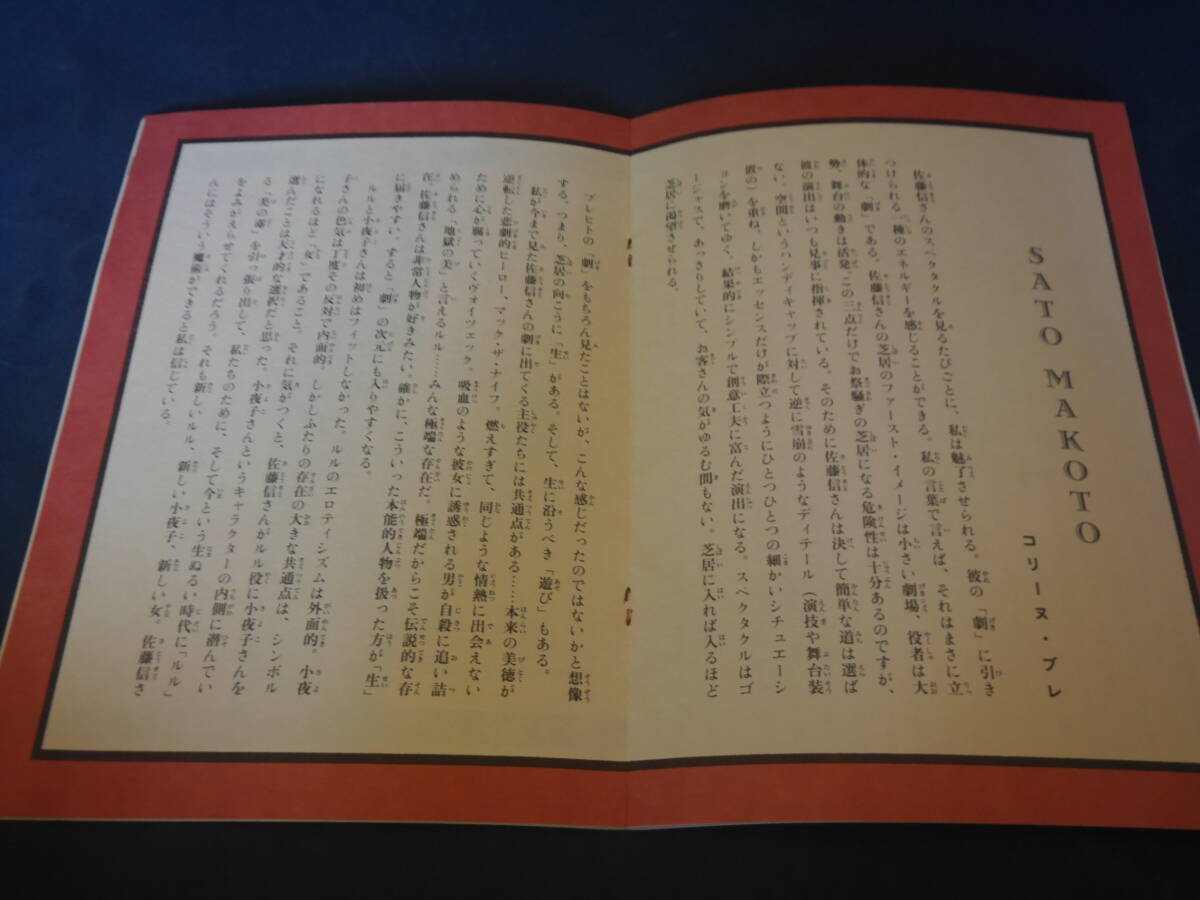 SATO MAKOTO
コリーヌ・ブレ
佐藤信さんのスペクタクルを見るたびごとに、私は魅了させられる。彼の「劇」に引き
つけられる。一種のエネルギーを感じることができる。私の言葉で言えば、それはまさに立
体的な「劇」である。佐藤信さんの芝居のファースト・イメージは小さい劇場、役者は大
勢、舞台の動きは活発。この三点だけでお祭騒ぎの芝居になる危険性は十分あるのですが、
彼の演出はいつも見事に指揮されている。そのために佐藤信さんは決して簡単な道は選ば
ない。空間というハンディキャップに対して逆に雪崩のようなディテール（演技や舞台装
置の）を重ね、しかもエッセンスだけが際立つようにひとつひとつの細かいシチュエーシ
ョンを磨いてゆく。結果的にシンプルで創意工夫に富んだ演出になる。スペクタクルはゴ
ージャスで、あっさりしていて、お客さんの気がゆるむ間もない。芝居に入れば入るほど
芝居に渇望させられる。
ブレヒトの「劇」をもちろん見たことはないが、こんな感じだったのではないかと想像
する。つまり、芝居の向こうに「生」がある。そして、生に沿うべき「遊び」もある。
私が今まで見た佐藤信さんの劇に出てくる主役たちには共通点がある……本来の美徳が
逆転した悲劇的ヒーロー、マック・ザ・ナイフ。燃えすぎて、同じような情熱に出会えない
ために心が腐っていくヴォイツェック。吸血のような彼女に誘惑される男が自殺に追い詰
められる「地獄の美」と言えるルル……みんな極端な存在だ。極端だからこそ伝説的な存
在。佐藤信さんは非常人物が好きみたい。確かに、こういった本能的人物を扱った方が「生」
に届きやすい。すると「劇」の次元にも入りやすくなる。
ルルと小夜子さんは初めはフィットしなかった。ルルのエロティシズムは外面的。小夜
子さんの色気は丁度その反対で内面的。しかしふたりの存在の大きな共通点は、シンボル
になれるほど「女」であること。それに気がつくと、佐藤信さんがルル役に小夜子さんを
選んだことは天才的な選択だと思った。小夜子さんというキャラクターの内側に潜んでい
る「美の毒」を引っ張り出して、私たちのために、そして今という生ぬるい時代に「ルル」
をよみがえらせてくれるだろう。それも新しいルル、新しい小夜子、新しい女。佐藤信さ
んにはそういう魔術ができると私は信じている。